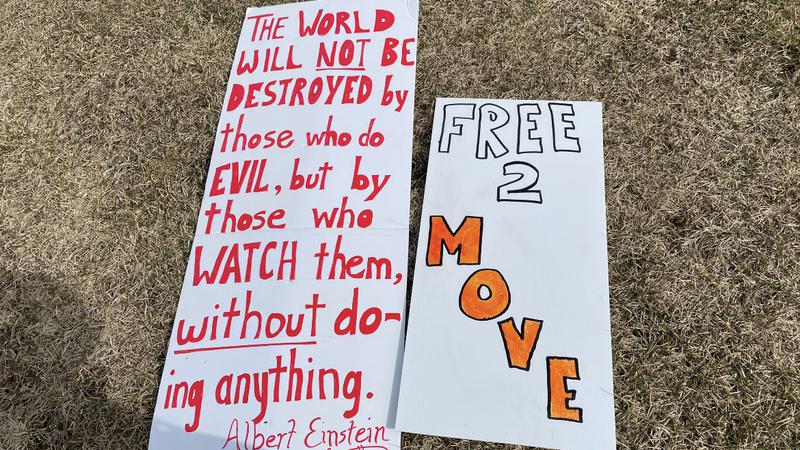 THE WORLD
WILL NOT BE
DESTROYED by
those who do
EVIL, but by
those who
WATCH them,
without do-
ing anything.
Albert Einstein
FREE
2
MOVE